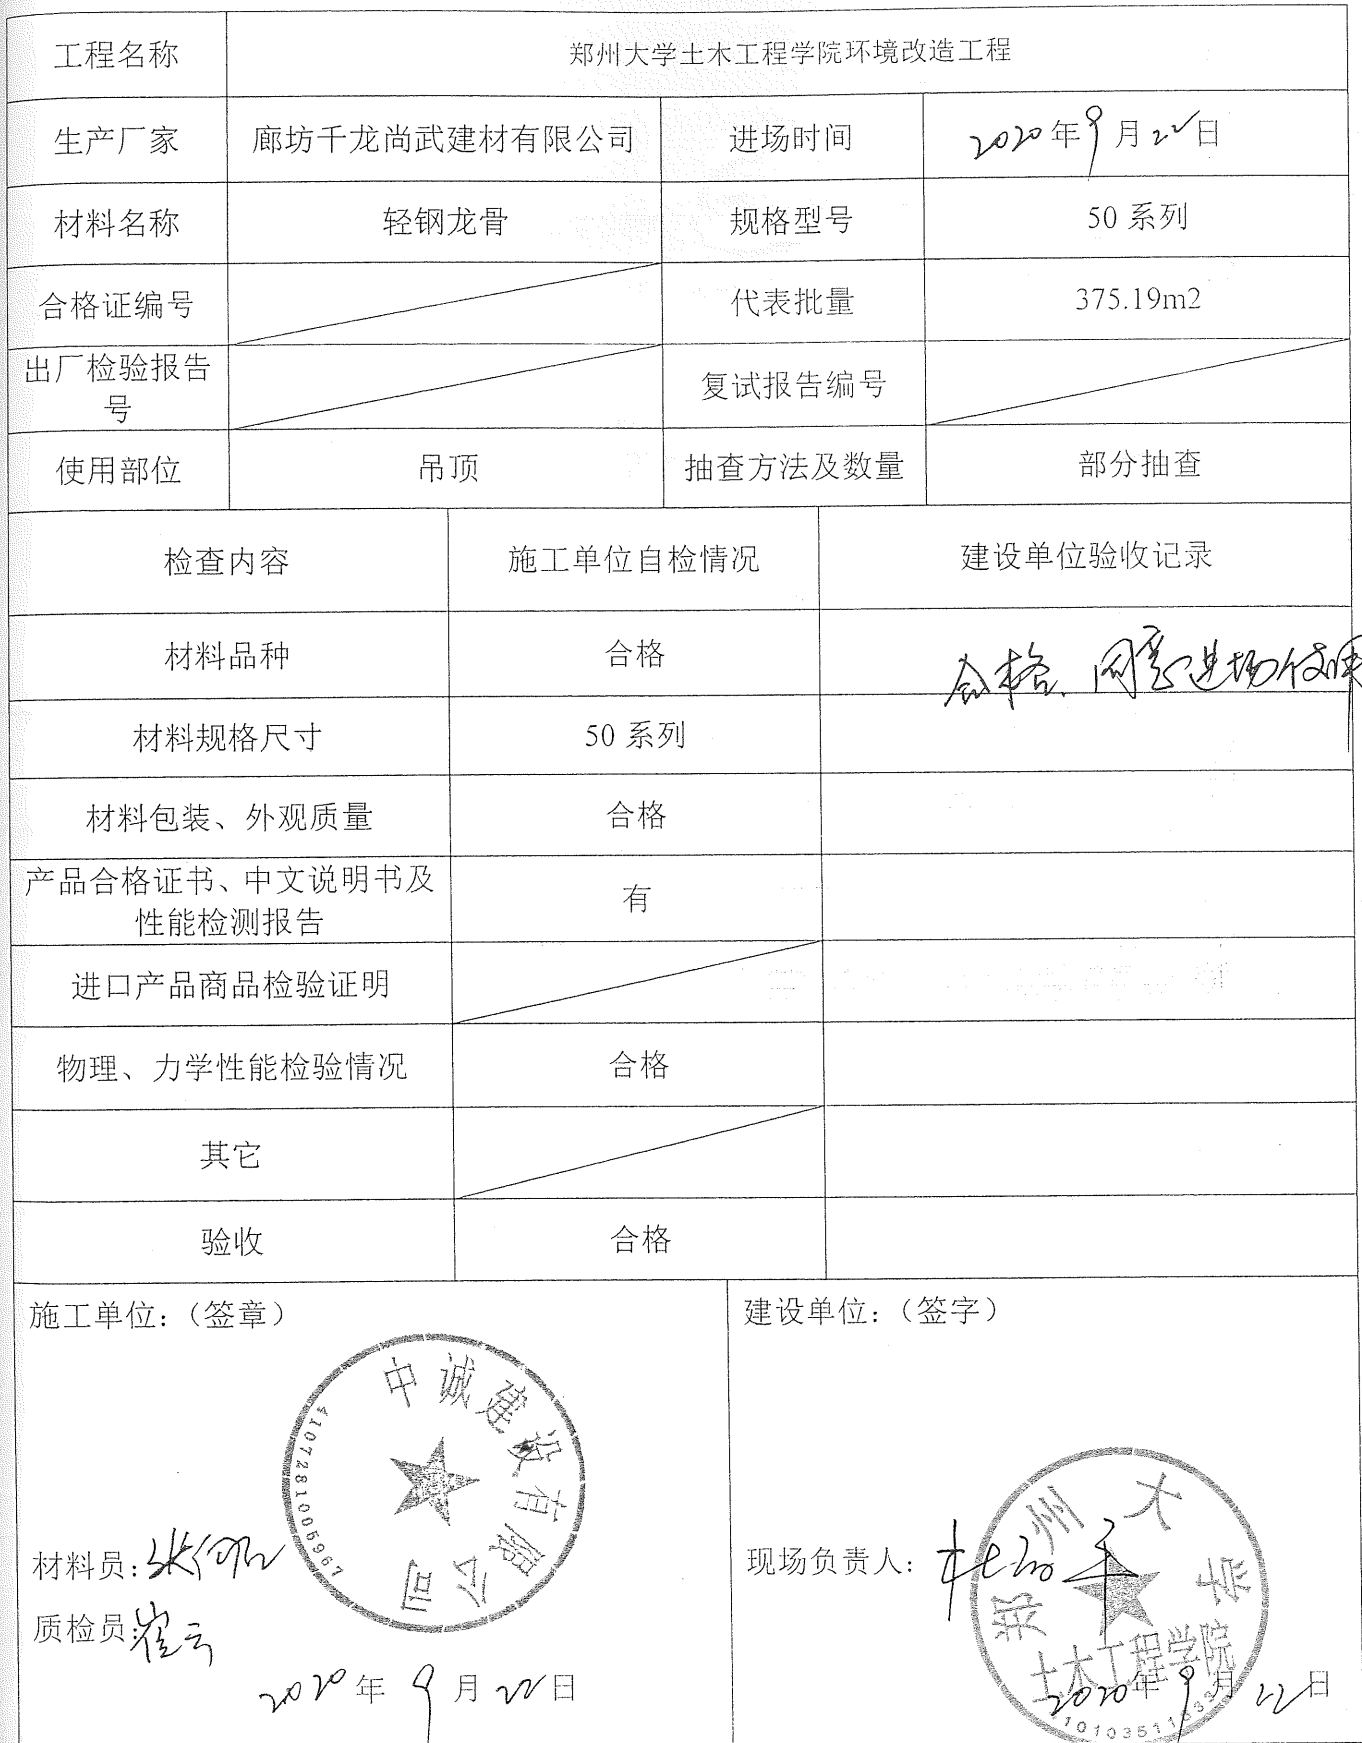 工程名称 郑州大学土木工程学院环境改造工程
生产厂家 廊坊千龙尚武建材有限公司 进场时间 2020年9月22日
材料名称 轻钢龙骨 规格型号 50 系列
合格证编号 代表批量 375.19m2
出厂检验报告
号 复试报告编号
使用部位 吊顶 抽查方法及数量 部分抽查
检查内容 施工单位自检情况 建设单位验收记录
材料品种 合格 合格、同意进场使用
材料规格尺寸 50 系列
材料包装、外观质量 合格
产品合格证书、中文说明书及
性能检测报告 有
进口产品商品检验证明
物理、力学性能检验情况 合格
其它
验收 合格
施工单位：（签章） 建设单位：（签字）
中诚建设有限公司
郑州大学
土木工程学院
材料员： 现场负责人：
质检员： 崔云
2020年9月22日 2020年9月22日